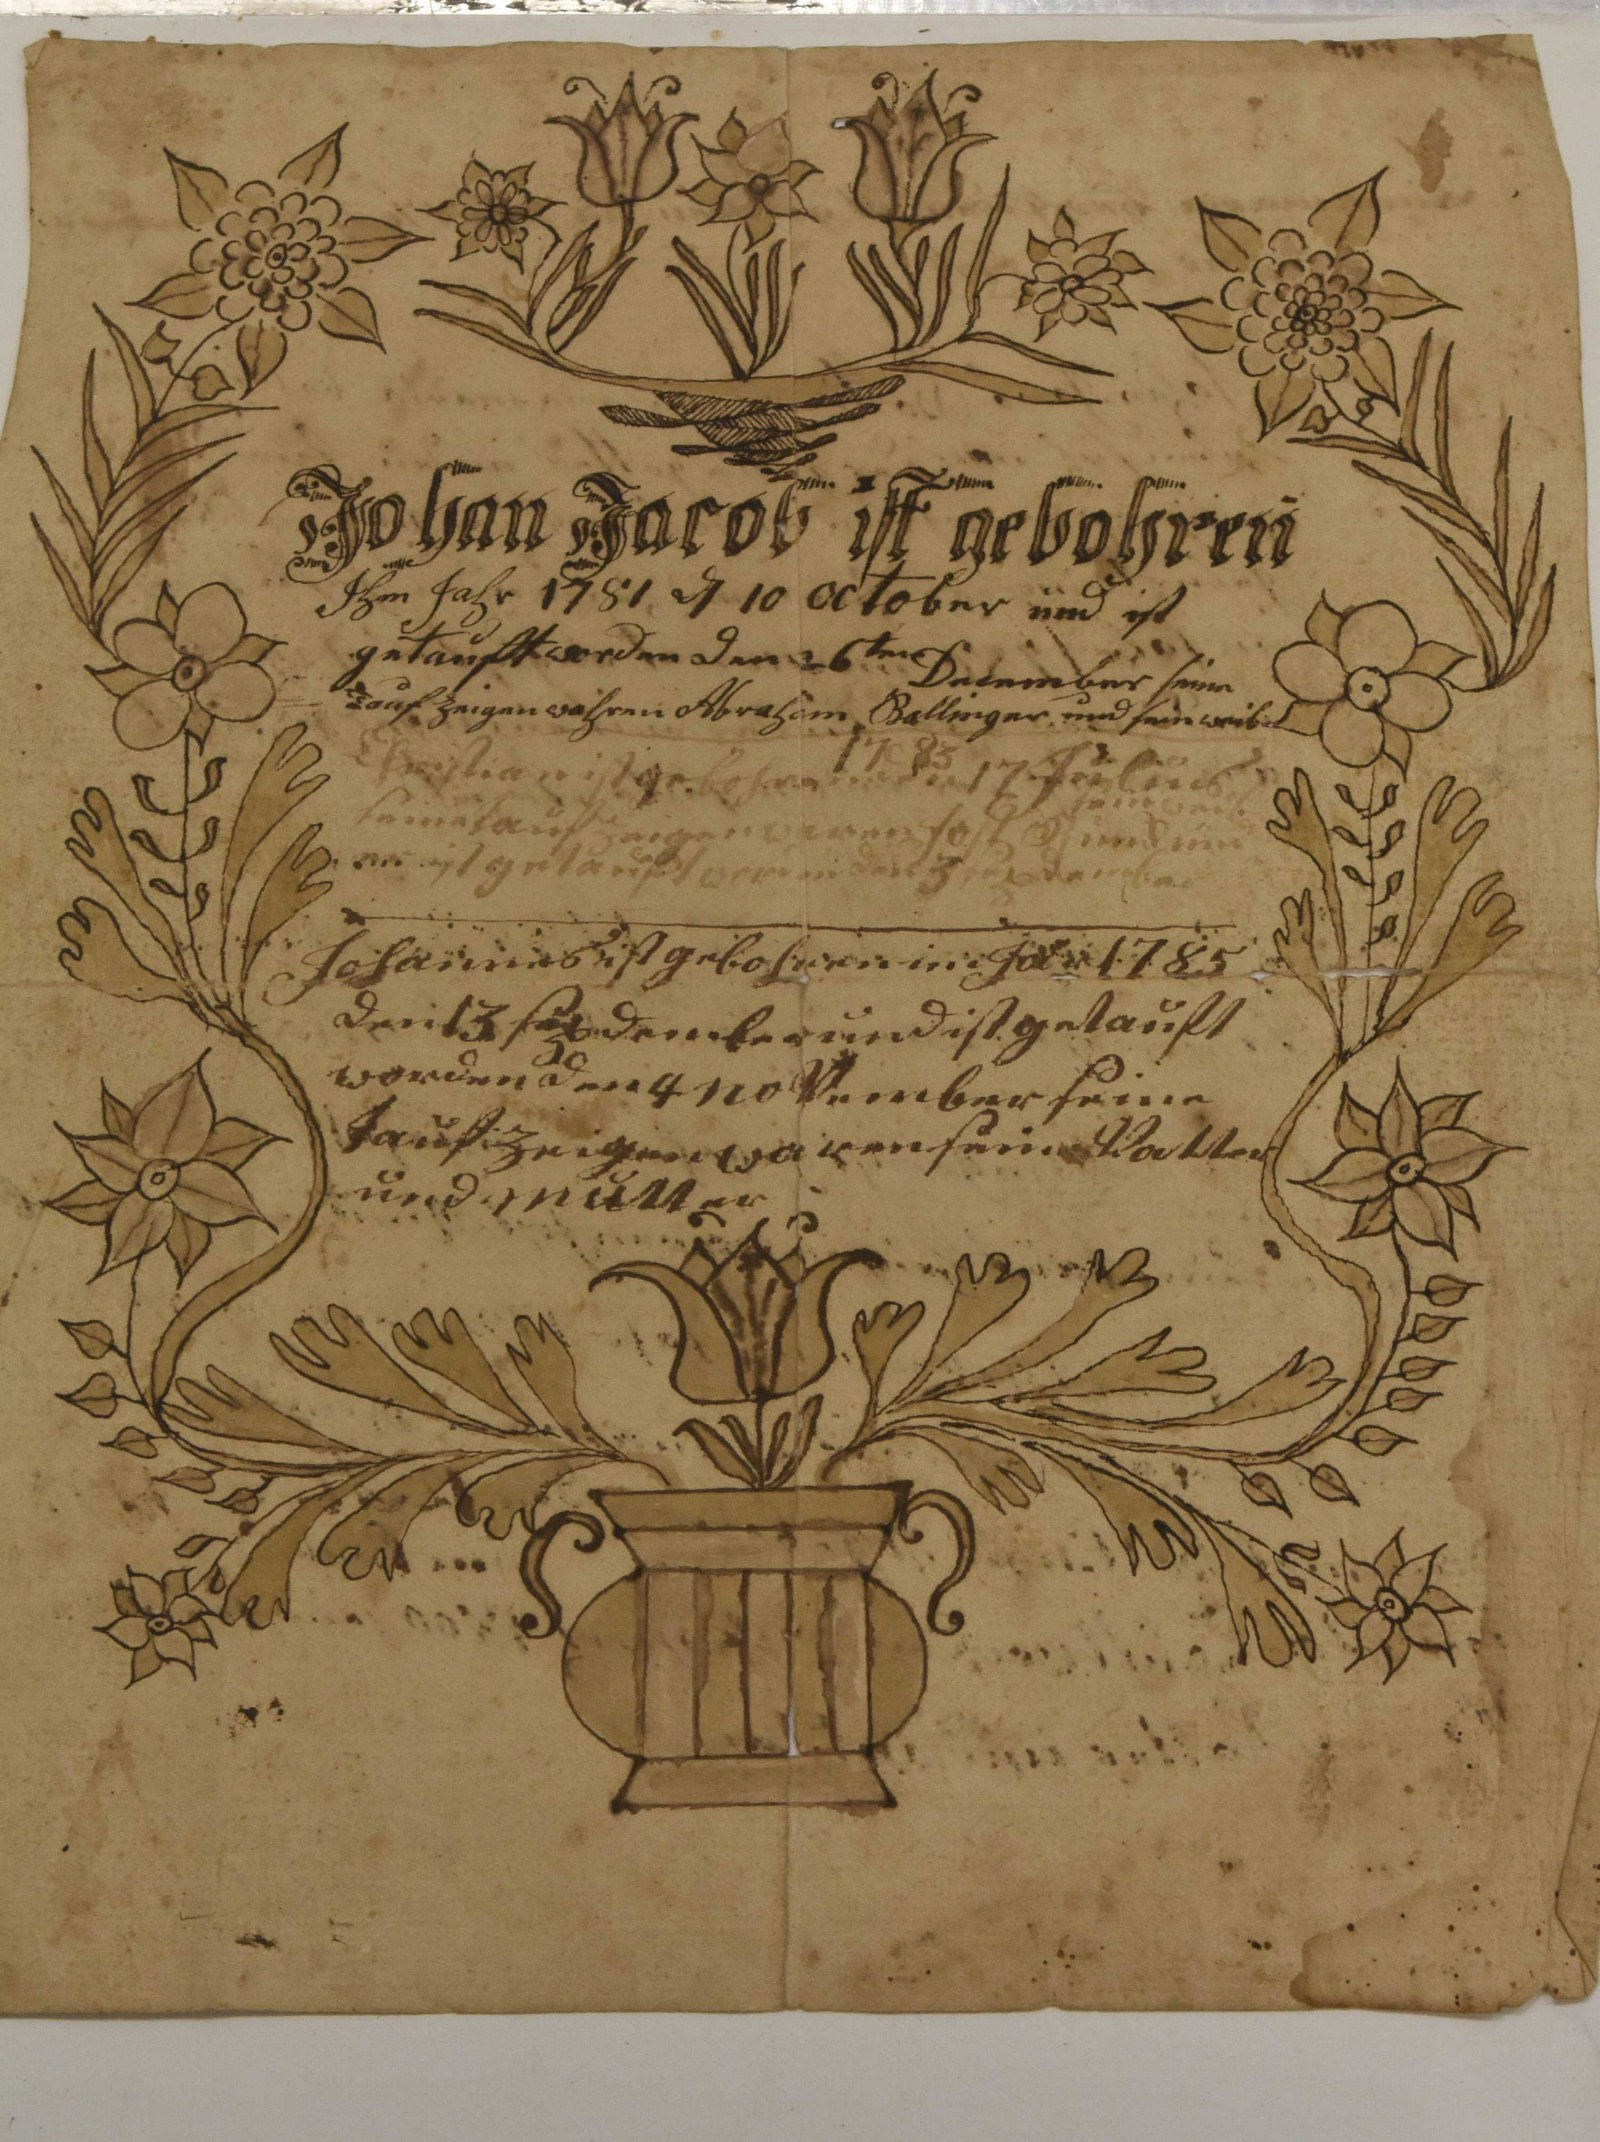 Johan Jacob ist gebohren
Ihm Jahr 1781 d 10 october und ist
getauft worden den 26ten
December seine
Tauf zeigen wahren Abraham Ballinger und sein weib
1783
Christian ist gebohren den 17 Julius
sein weib
seine tauf zeigen waren und
er ist getauft worden den 3
Johannes ist gebohren in Jahr 1785
den 13 september und ist getauft
worden den 4 november seine
tauf zeigen waren sein Vatter
und mutter